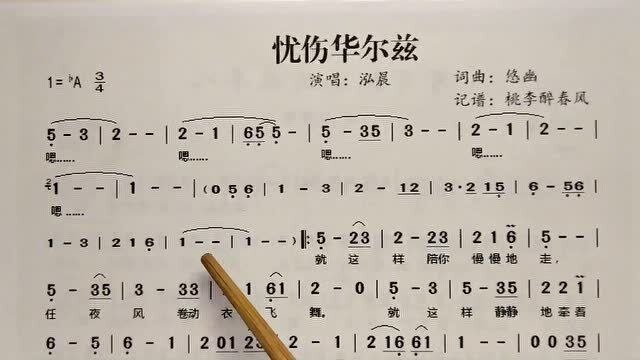 忧伤华尔兹
1=♭A 3/4 演唱：泓晨 词曲：悠幽
记谱：桃李醉春风
5 - 3 | 2 - - | 2 - 1 | 6 5 5 - | 5 - 35 | 2 - - | 2 - 1 |
嗯…… 嗯…… 嗯…… 嗯……
1 - - | 1 - - | (0 5 6 | 1 - 3 | 2 - 12 | 3 · 2 1 5 | 6 - 56 |
嗯……
1 - 3 | 2 1 6 | 1 - - | 1 - - ) ‖: 5 - 23 | 2 - 23 | 2 1 6 | 5 - - |
就 这 样 陪你 慢慢地 走，
5 - 35 | 3 - 33 | 1 · 61 | 2 - 0 | 5 - 23 | 2 - 165 | 0 0 35 |
任 夜 风 卷动 衣 飞 舞。 就 这 样 静静 地 牵着
6 - 5 | 6 - 2 | 0 2 1 2 | 3 - - | 2 - 2 1 6 6 1 | 2 - - |